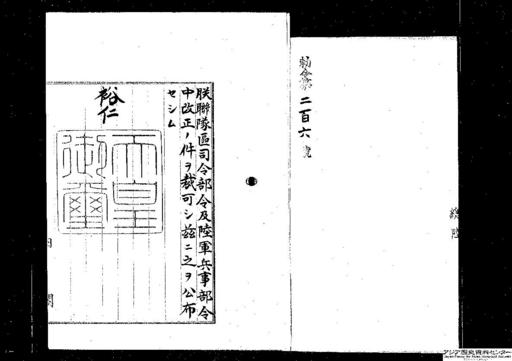 勅令第二百六號
朕聯隊區司令部令及陸軍兵事部令
中改正ノ件ヲ裁可シ茲ニ之ヲ公布
セシム
裕仁
天皇
御璽
内閣
アジア歴史資料センター